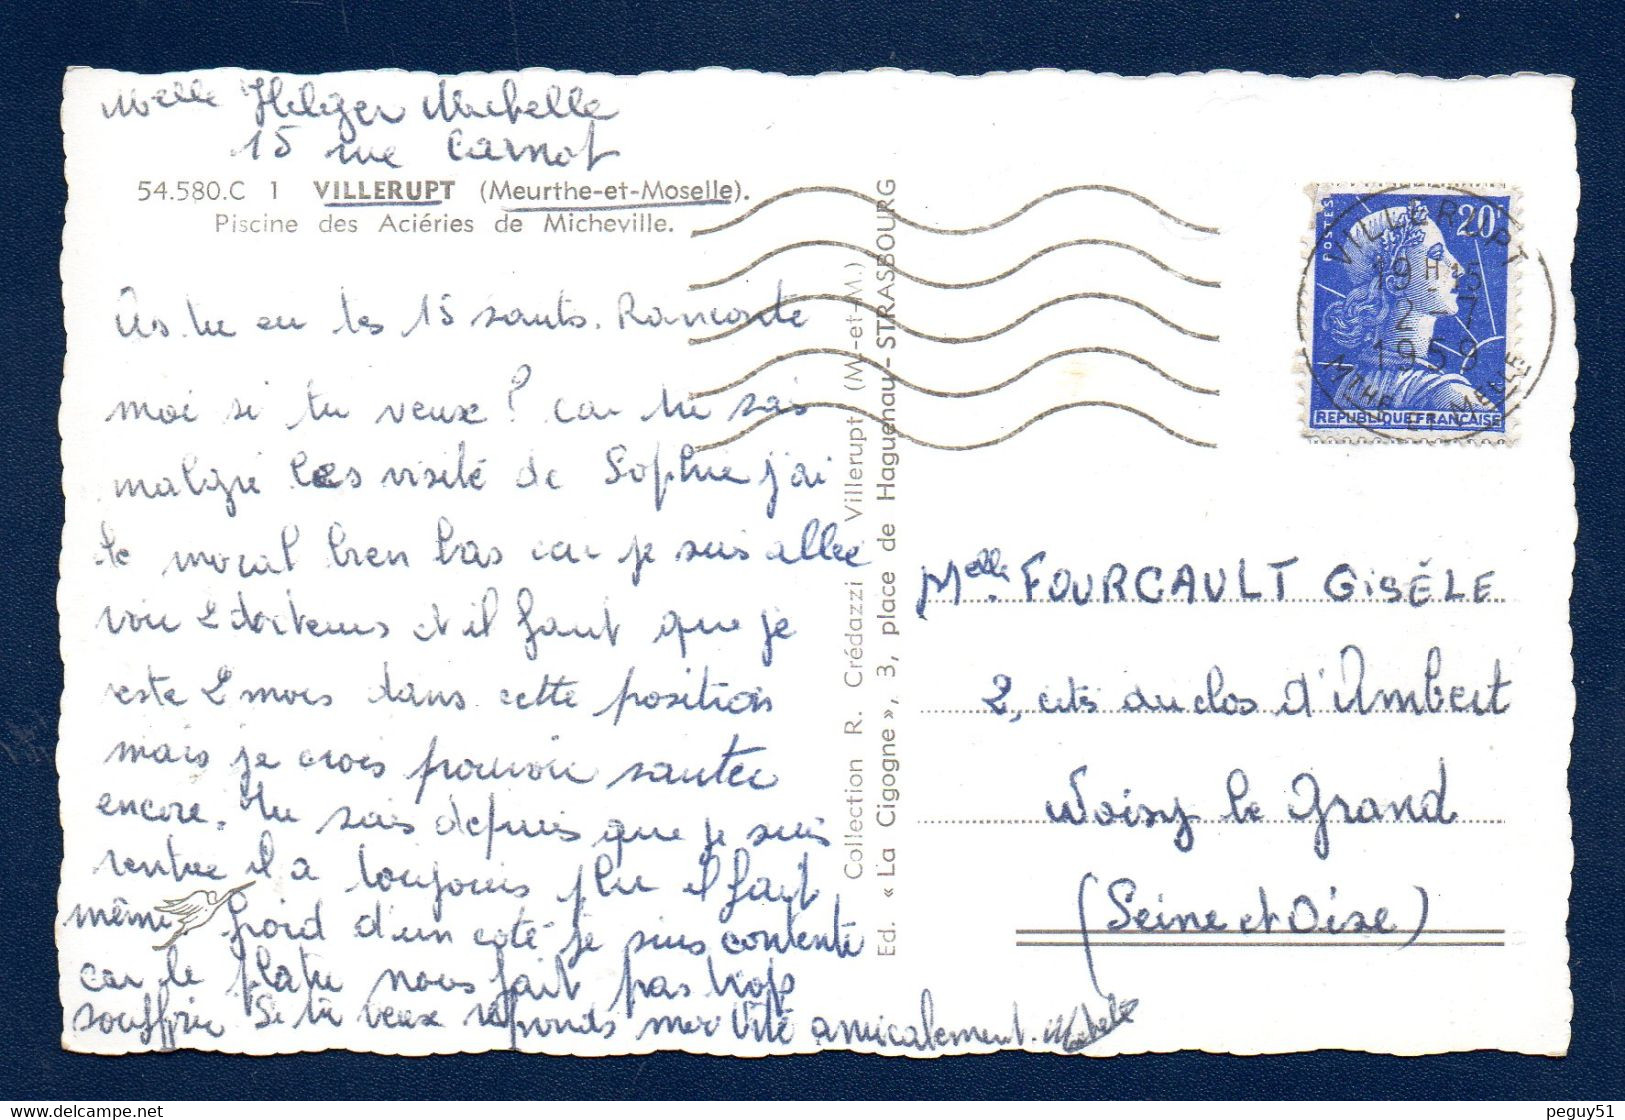 Melle Helger Michelle
15 rue Carnot
54.580.C 1 VILLERUPT (Meurthe-et-Moselle).
Piscine des Aciéries de Micheville.
As tu eu tes 15 sauts. Raconte
moi si tu veux? car tu sais
malgré les visité de Sophie j'ai
le moral bien bas car je suis allée
voir 2 docteurs et il faut que je
reste 2 mois dans cette position
mais je crois pouvoir sauter
encore. Tu sais depuis que je suis
rentrée il a toujours plu il fait
même froid d'un coté je suis contente
car le platre nous fait pas trop
souffrir Si tu veux réponds moi vite amicalement. Michelle
Collection R. Crédazzi Villerupt (M.-et-M.)
Ed. « La Cigogne », 3, place de Haguenau - STRASBOURG
POSTES
20F
REPUBLIQUE FRANÇAISE
VILLERUPT
19H15
2 - 7
1959
MTHE ET MELLE
Melle. FOURCAULT GISÈLE
2, cité du clos d'Ambert
Noisy le Grand
(Seine et Oise)
peguy51